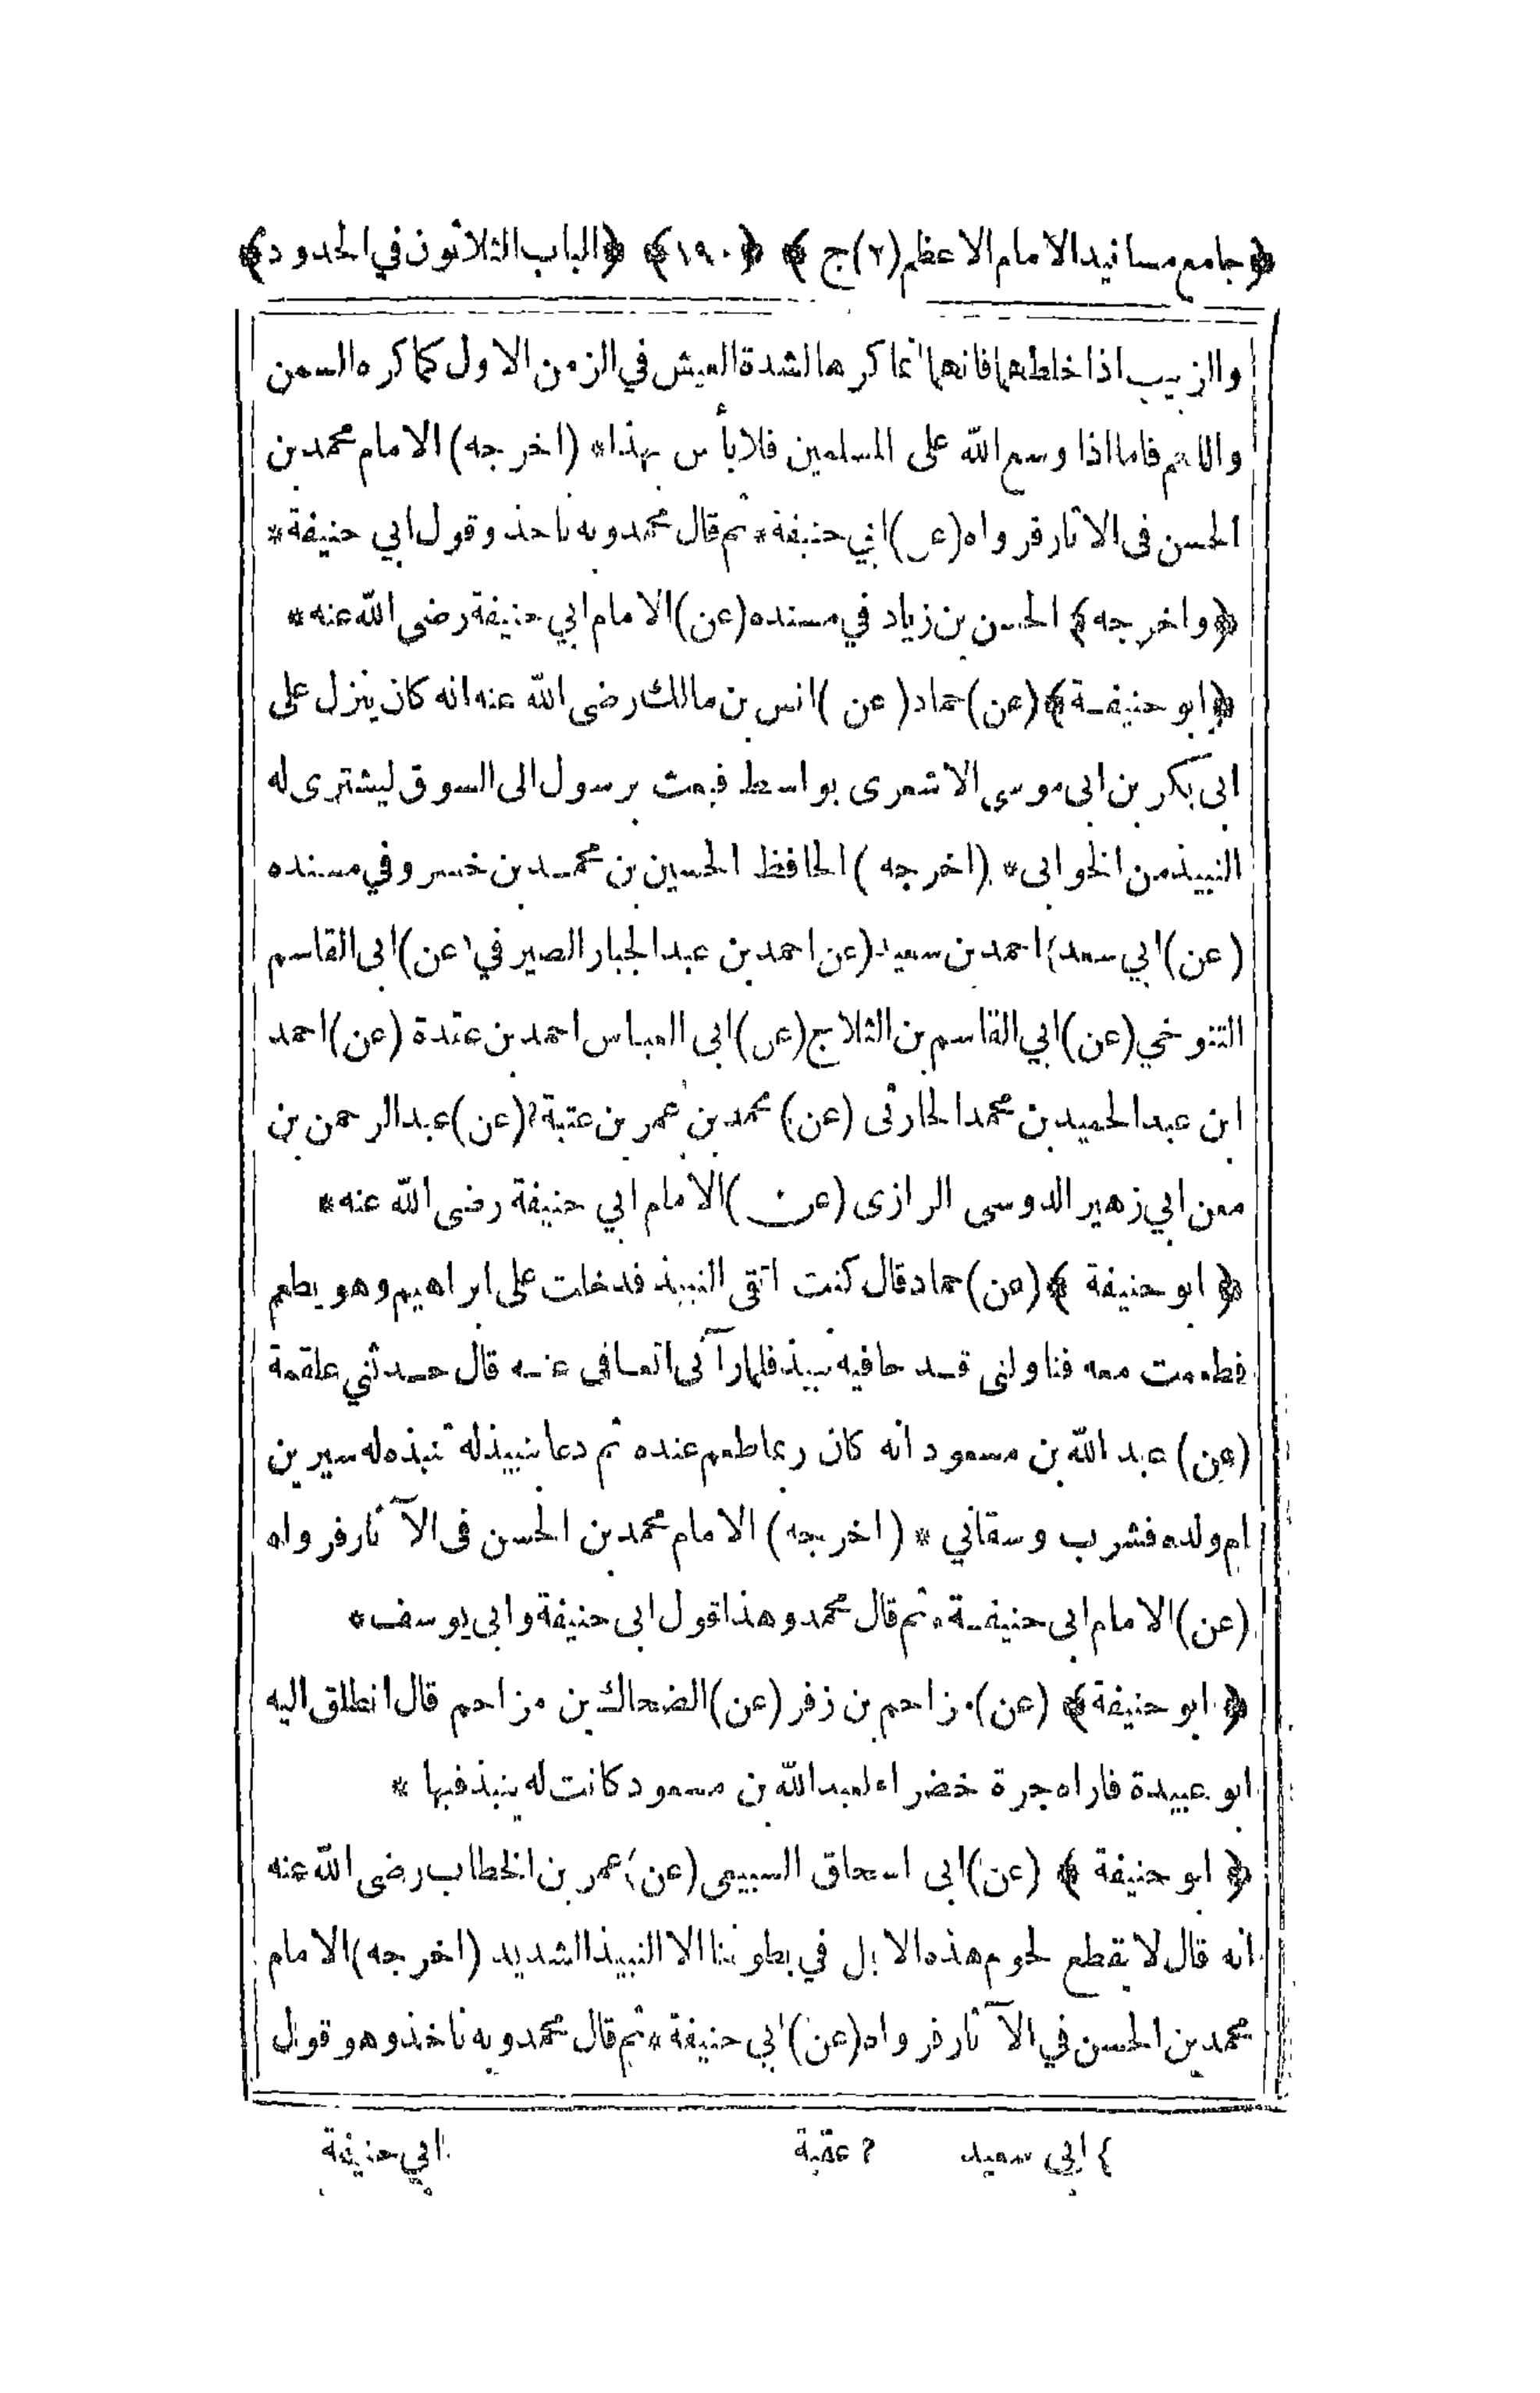 ﴿جامع مسانيد الامام الاعظم(٢)ج﴾ ﴿١٩٠﴾ ﴿الباب الثلاثون في الحدود﴾
والزبيب اذا خلطهما فانهما انما كرها لشدة العيش في الزمن الاول كما كره السمن
واللحم فاما اذا وسع الله على المسلمين فلا بأس بهذا* (اخرجه) الامام محمد بن
الحسن فى الاثار فرواه (عن) ابي حنيفة* ثم قال محمد وبه ناخذ وقول ابي حنيفة*
﴿واخرجه﴾ الحسن بن زياد في مسنده (عن) الامام ابي حنيفة رضى الله عنه*
﴿ابو حنيفة﴾ (عن) حماد (عن) انس بن مالك رضى الله عنه انه كان ينزل على
ابى بكر بن ابى موسى الاشعرى بواسط فيبعث برسول الى السوق ليشترى له
النبيذ من الخوابى* (اخرجه) الحافظ الحسين بن محمد بن خسرو في مسنده
(عن) ابي سعد} احمد بن سعيد (عن احمد بن عبد الجبار الصيرفي (عن) ابى القاسم
التنوخي (عن) ابي القاسم بن الثلاج (عن) ابى العباس احمد بن عقدة (عن) احمد
ابن عبد الحميد بن محمد الحارثى (عن) محمد بن عمر بن عتبة? (عن) عبد الرحمن بن
معن ابي زهير الدوسى الرازى (عن) الامام ابي حنيفة رضى الله عنه*
﴿ابو حنيفة﴾ (عن) حماد قال كنت اتقى النبيذ فدخلت على ابراهيم وهو يطعم
فطعمت معه فناولنى قدحا فيه نبيذ فلما رآنى اتعافى عنه قال حدثني علقمة
(عن) عبد الله بن مسعود انه كان ربما طعم عنده ثم دعا بنبيذ له تنبذه له سيرين
ام ولده فشرب وسقاني* (اخرجه) الامام محمد بن الحسن فى الآثار فرواه
(عن) الامام ابى حنيفة* ثم قال محمد وهذا قول ابى حنيفة وابى يوسف*
﴿ابو حنيفة﴾ (عن) مزاحم بن زفر (عن) الضحاك بن مزاحم قال انطلق اليه
ابو عبيدة فاراه جرة خضراء لعبد الله بن مسعود كانت له ينبذ فيها*
﴿ابو حنيفة﴾ (عن) ابى اسحاق السبيعى (عن) عمر بن الخطاب رضى الله عنه
انه قال لا يقطع لحوم هذه الابل في بطوننا الا النبيذ الشديد (اخرجه) الامام
محمد بن الحسن في الآثار فرواه (عن) ابي حنيفة* ثم قال محمد وبه ناخذ وهو قول
} ابي سعيد ? عقبة ابي حنيفة